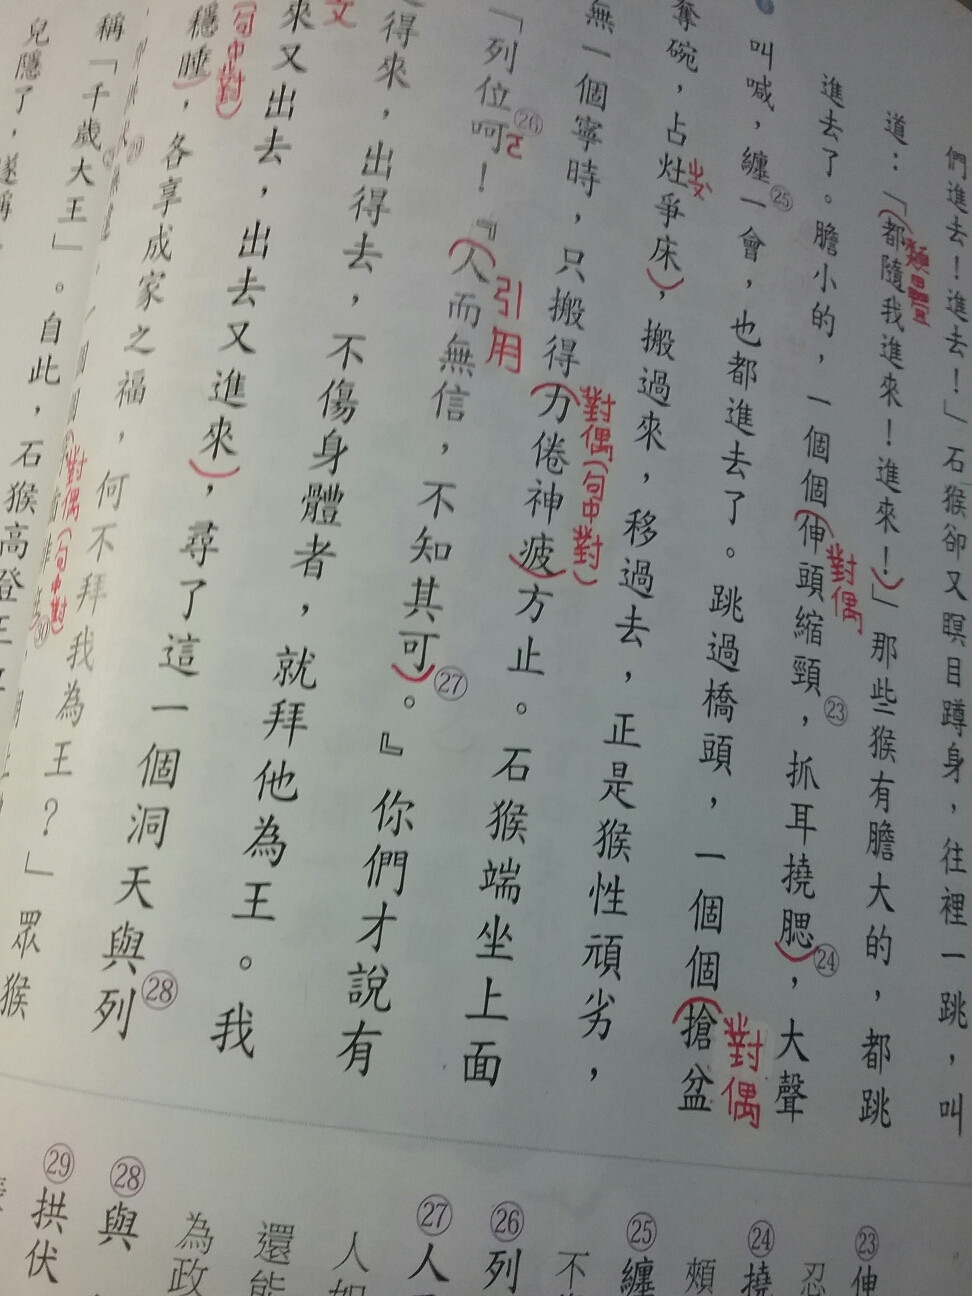 們進去！進去！」石猴卻又瞑目蹲身，往裡一跳，叫
道：「都隨我進來！進來！」那些猴有膽大的，都跳
類疊
進去了。膽小的，一個個伸頭縮頸㉓，抓耳撓腮㉔，大聲
對偶
叫喊，纏㉕一會，也都進去了。跳過橋頭，一個個搶盆
對偶
奪碗，占灶爭床，搬過來，移過去，正是猴性頑劣，
無一個寧時，只搬得力倦神疲方止。石猴端坐上面
對偶(句中對)
「列位㉖呵！『人而無信，不知其可㉗。』你們才說有
ㄛ
引用
得來，出得去，不傷身體者，就拜他為王。我
來又出去，出去又進來，尋了這一個洞天與㉘列
(句中對)
穩睡，各享成家之福，何不拜我為王？」眾猴
對偶(句中對)
㉚
稱「千歲大王」。自此，石猴高登王
兒隱了，遂稱
㉓伸
忍
㉔撓
頰
㉕纏
不
㉖列
㉗人
人如
還能
為政
㉘與
㉙拱伏